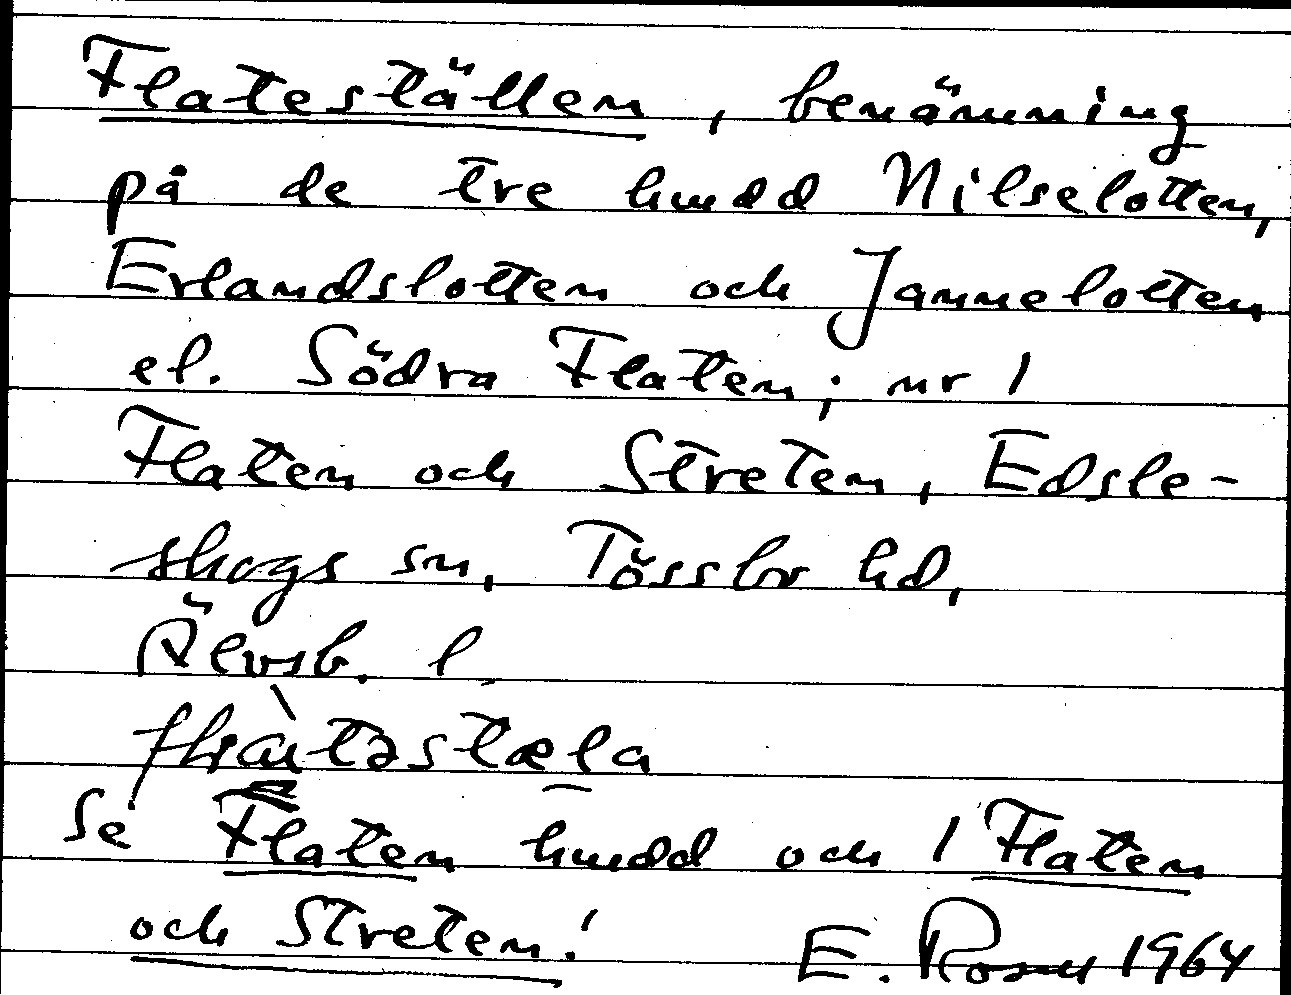 Flateställen, benämning
på de tre hmdd Nilselotten,
Erlandslotten och Jannelotten
el. Södra Flaten; nr 1
Flaten och Streten, Edsle-
skogs sn, Tössbo hd,
Älvsb. l.
Se Flaten hmdd och 1 Flaten
och Streten! E. Rosell 1964